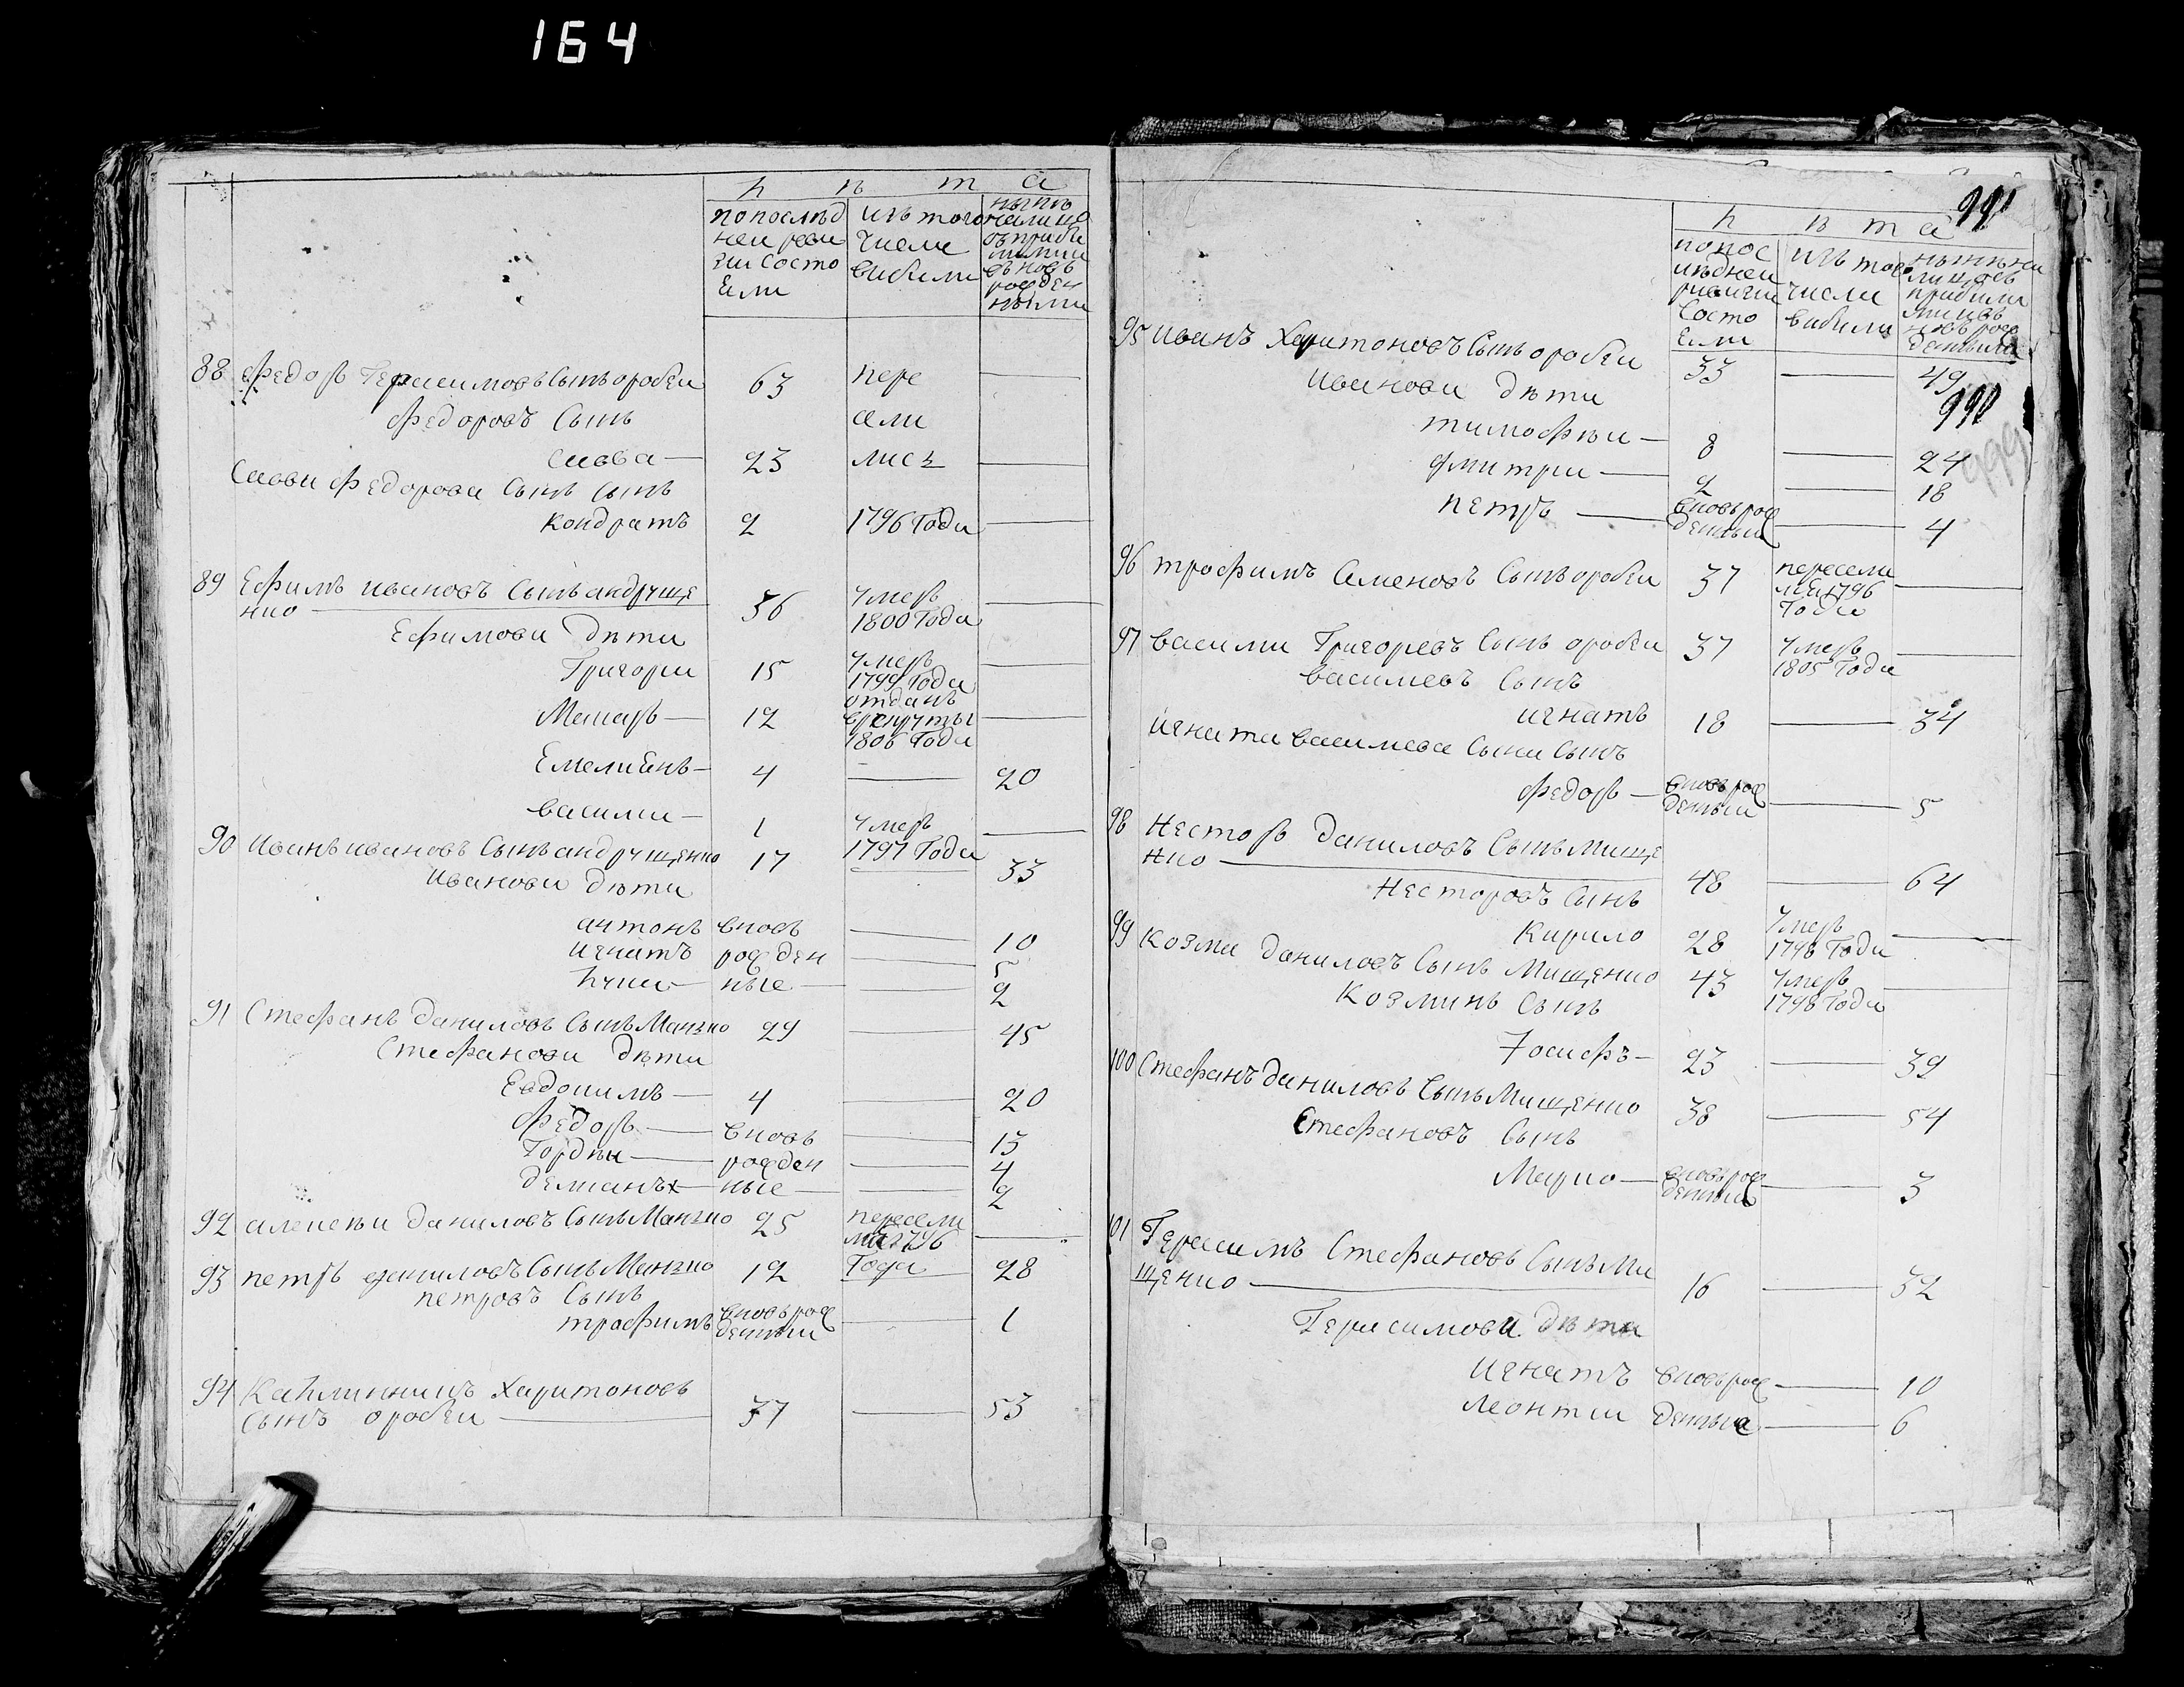 164
л ѣ т а
по послѣд
ней реви
зии состо
яли
изъ того
числа
выбыли
нынѣ
налицо
съ прибы
лыми и
вновь
рожден
ными
88 Федоръ Герасимовъ Сынъ оробеи 63 пере —
Федоровъ Сынъ сели
Савва — 23 лись —
Савы Федорова Сына Сынъ
Кондратъ 2 1796 Года —
89 Ефимъ Ивановъ Сынъ андруще
нко — 36 умеръ 1800 Года —
Ефимовы дѣти
Григори 15 умеръ 1799 Года —
Макаръ — 12 отданъ в рекруты 1806 Года —
Емелианъ — 4 — 20
Васили — 1 умеръ 1797 Года —
90 Иванъ Ивановъ Сынъ андрущенко 17 — 33
Ивановы дѣти
антонъ вновь — 10
Игнатъ рожден — 5
Лука — ные — 2
91 Стефанъ Даниловъ Сынъ Манзко 29 — 45
Стефановы дѣти
Евдокимъ — 4 — 20
Федоръ — вновь — 13
Гордѣи — рожден — 4
Демианъ — ные — 2
92 алексѣи Даниловъ Сынъ Манзко 25 пересели
лся 1796
Года —
93 петръ Даниловъ Сынъ Манзко 12 — 28
петровъ Сынъ
трофимъ вновь рож
денныи — 1
94 Харитоновъ
Сынъ оробеи — 37 — 53
991
л ѣ т а
по пос
лѣднеи
ревизии
состо
яли
изъ того
числа
выбыли
нынѣ на
лицо съ
прибылы
ми и въ
новь рож
денными
95 Иванъ Харитоновъ Сынъ оробеи 33 — 49
990
999
Ивановы дѣти
тимофѣи — 8 — 24
Дмитри — 2 — 18
петръ — вновь рож
денныи — 4
96 трофимъ Семеновъ Сынъ оробеи 37 пересели
лся 1796
Года —
97 Васили Григоревъ Сынъ оробеи 37 умеръ
1805 Года —
Василиевъ Сынъ
Игнатъ 18 — 34
Игната Василиева Сына Сынъ
Федоръ — вновь рож
денныи — 5
98 Несторъ Даниловъ Сынъ Мище
нко — 48 — 64
Несторовъ Сынъ
Кирило 28 умеръ
1798 Года —
99 Козма Даниловъ Сынъ Мищенко 43 умеръ
1798 Года —
Козминъ Сынъ
Iосифъ — 23 — 39
100 Стефанъ Даниловъ Сынъ Мищенко 38 — 54
Стефановъ Сынъ
Марко — вновь рож
денныи — 3
101 Герасимъ Стефановъ Сынъ Ми
щенко — 16 — 32
Герасимовы дѣти
Игнатъ вновь рож — 10
Леонтии денныя — 6